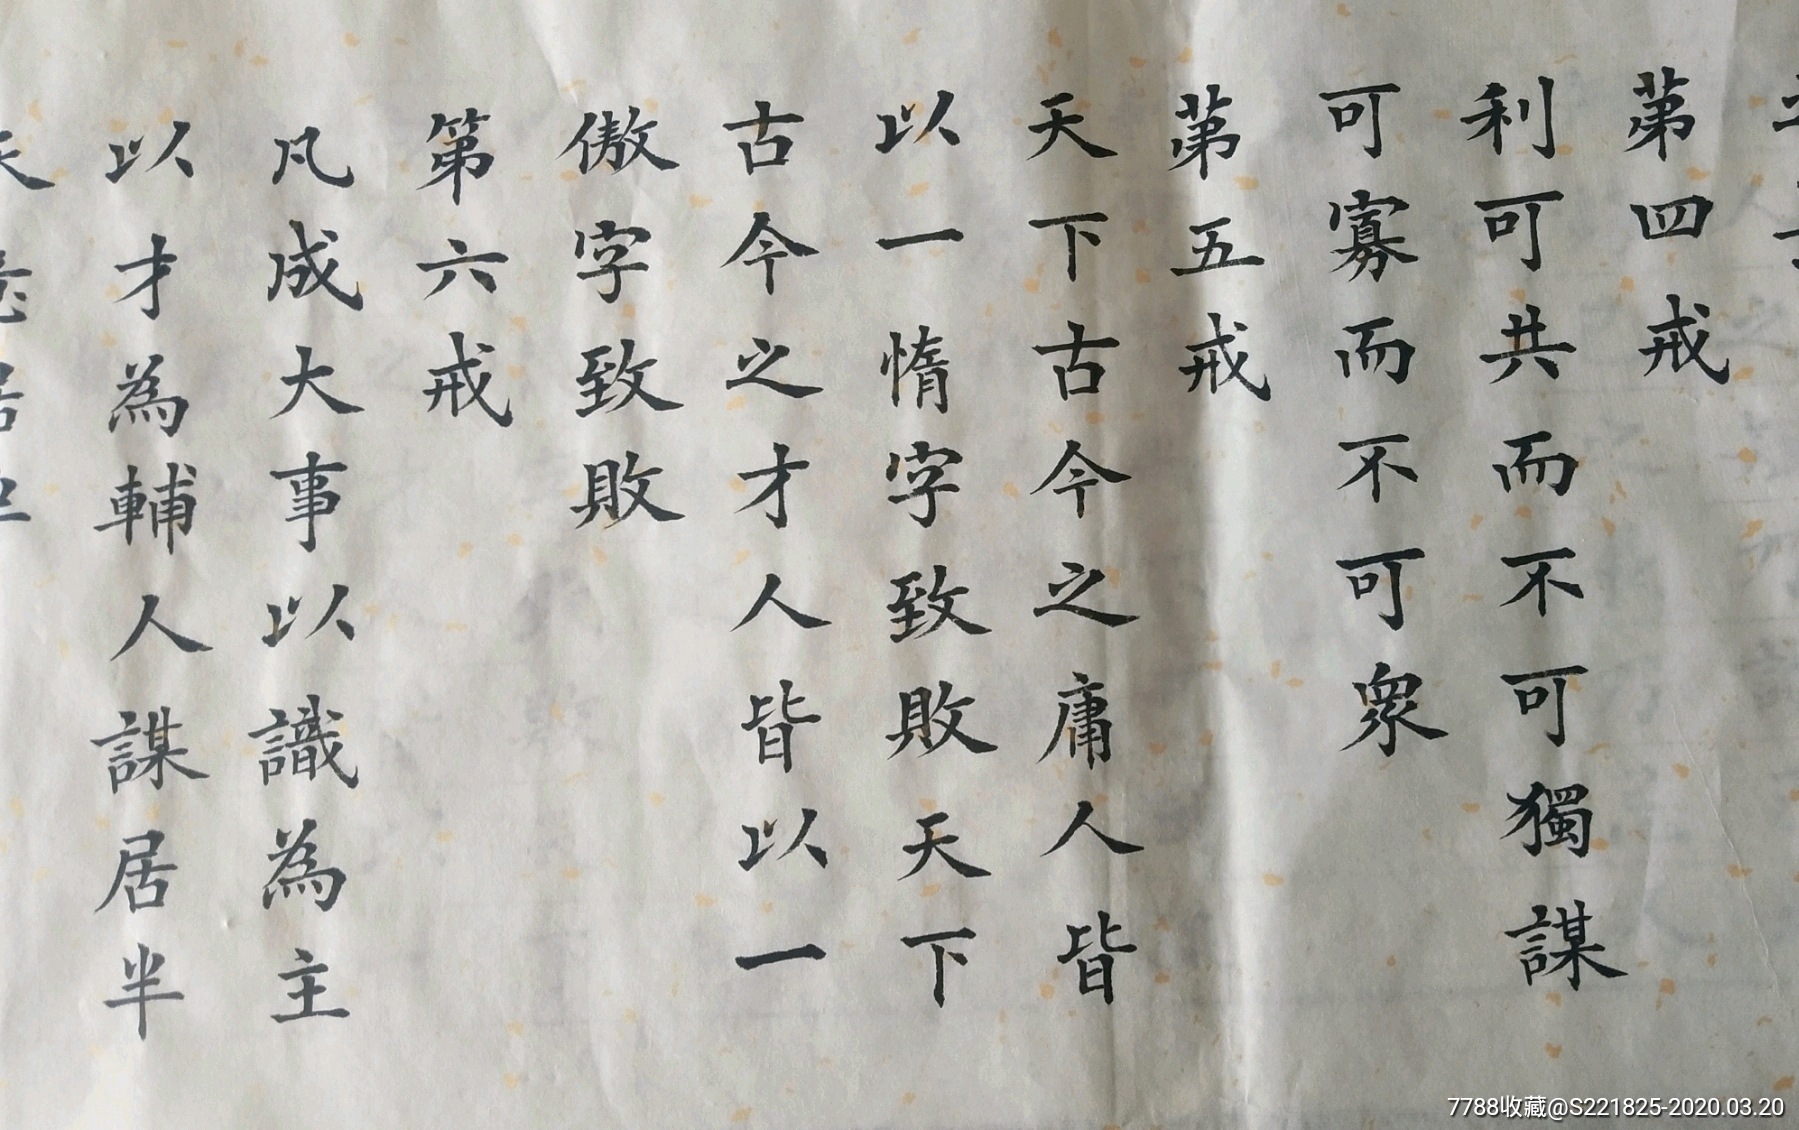 第四戒
利可共而不可獨謀
可寡而不可衆
第五戒
天下古今之庸人皆
以一惰字致敗天下
古今之才人皆以一
傲字致敗
第六戒
凡成大事以識為主
以才為輔人謀居半
天意居
7788收藏@S221825-2020.03.20